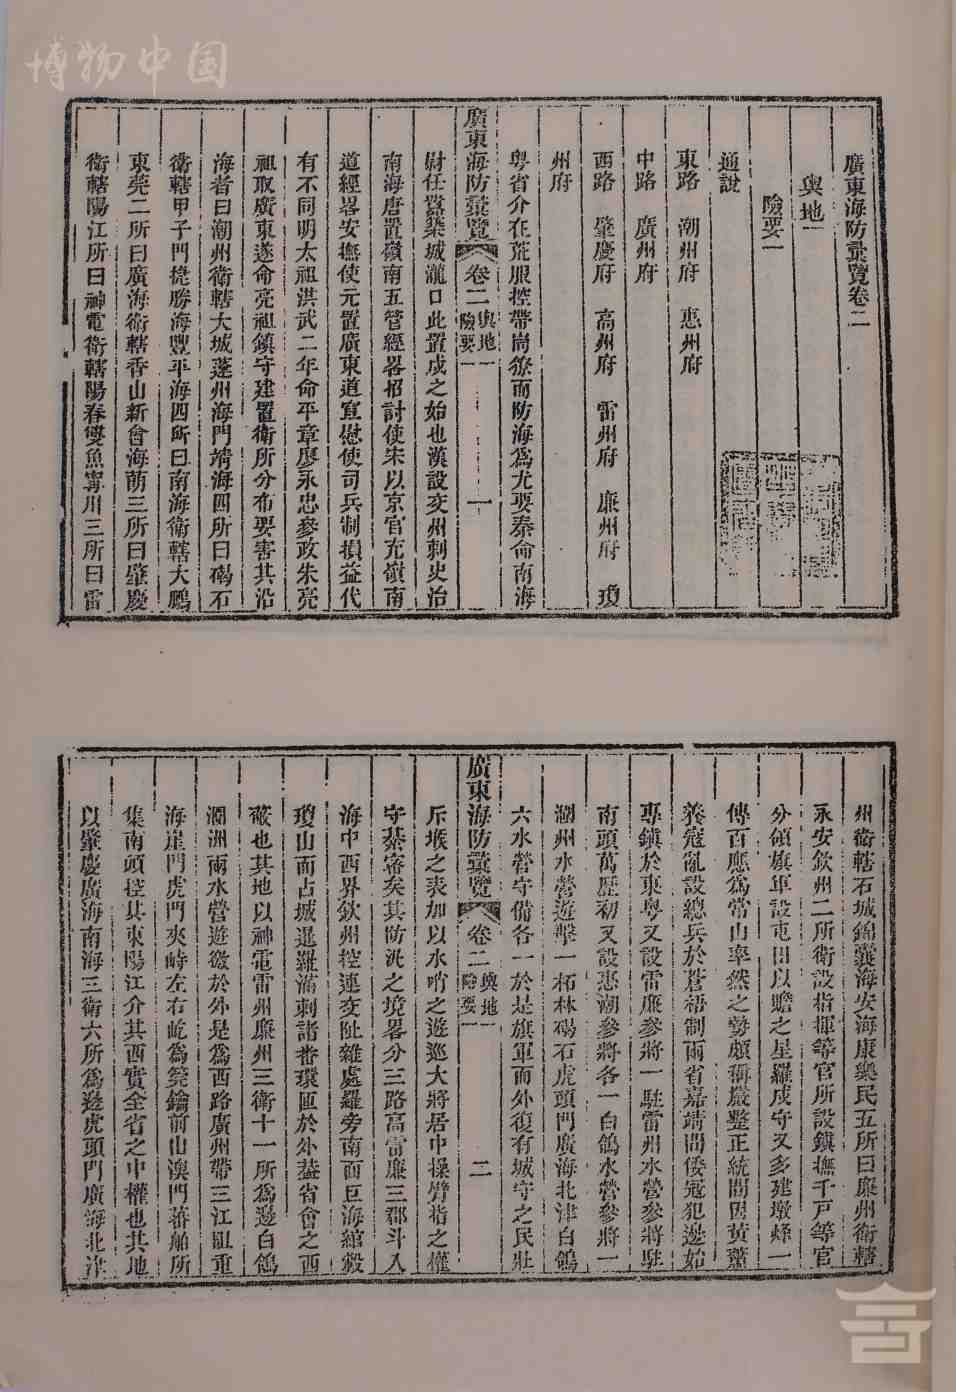 博物中国
廣東海防彙覽卷二
輿地一
險要一
通說
東路 潮州府 惠州府
中路 廣州府
西路 肇慶府 高州府 雷州府 廉州府 瓊
州府
粵省介在荒服控帶嶺徼而防海爲尤要秦命南海
廣東海防彙覽 卷二 輿地一 險要一 一
尉任囂築城瀧口此置戍之始也漢設交州刺史治
南海唐置嶺南五管經畧招討使宋以京官充嶺南
道經畧安撫使元置廣東道宣慰使司兵制損益代
有不同明太祖洪武二年命平章廖永忠參政朱亮
祖取廣東遂命亮祖鎮守建置衛所分布要害其沿
海者曰潮州衛轄大城蓬州海門靖海四所曰碣石
衛轄甲子門捷勝海豐平海四所曰南海衛轄大鵬
東莞二所曰廣海衛轄香山新會海朗三所曰肇慶
衛轄陽江所曰神電衛轄陽春雙魚寧川三所曰雷
州衛轄石城錦囊海安海康樂民五所曰廉州衛轄
永安欽州二所衛設指揮等官所設鎮撫千戸等官
分領旗軍設屯田以贍之星羅戍守又多建墩烽一
傳百應爲常山率然之勢頗稱嚴整正統間因黃蕭
養寇亂設總兵於蒼梧制兩省嘉靖間倭寇犯邊始
專鎮於東粵又設雷廉參將一駐雷州水營參將駐
南頭萬歷初又設惠潮參將各一白鴿水營參將一
潿州水營遊擊一柘林碣石虎頭門廣海北津白鴿
六水營守備各一於是旗軍而外復有城守之民壯
廣東海防彙覽 卷二 輿地一 險要一 二
斥堠之表加以水哨之遊巡大將居中操臂指之權
守綦密矣其防汛之境畧分三路高雷廉三郡斗入
海中西界欽州控連交阯雜處羅旁南面巨海綰轂
瓊山而占城暹羅滿剌諸番環匝於外葢省會之西
蔽也其地以神電雷州廉州三衛十一所爲邊白鴿
潿洲兩水營遊徼於外是爲西路廣州帶三江阻重
海崖門虎門夾峙左右屹爲筦鑰前山澳門蕃舶所
集南頭控其東陽江介其西實全省之中權也其地
以肇慶廣海南海三衛六所爲邊虎頭門廣海北津